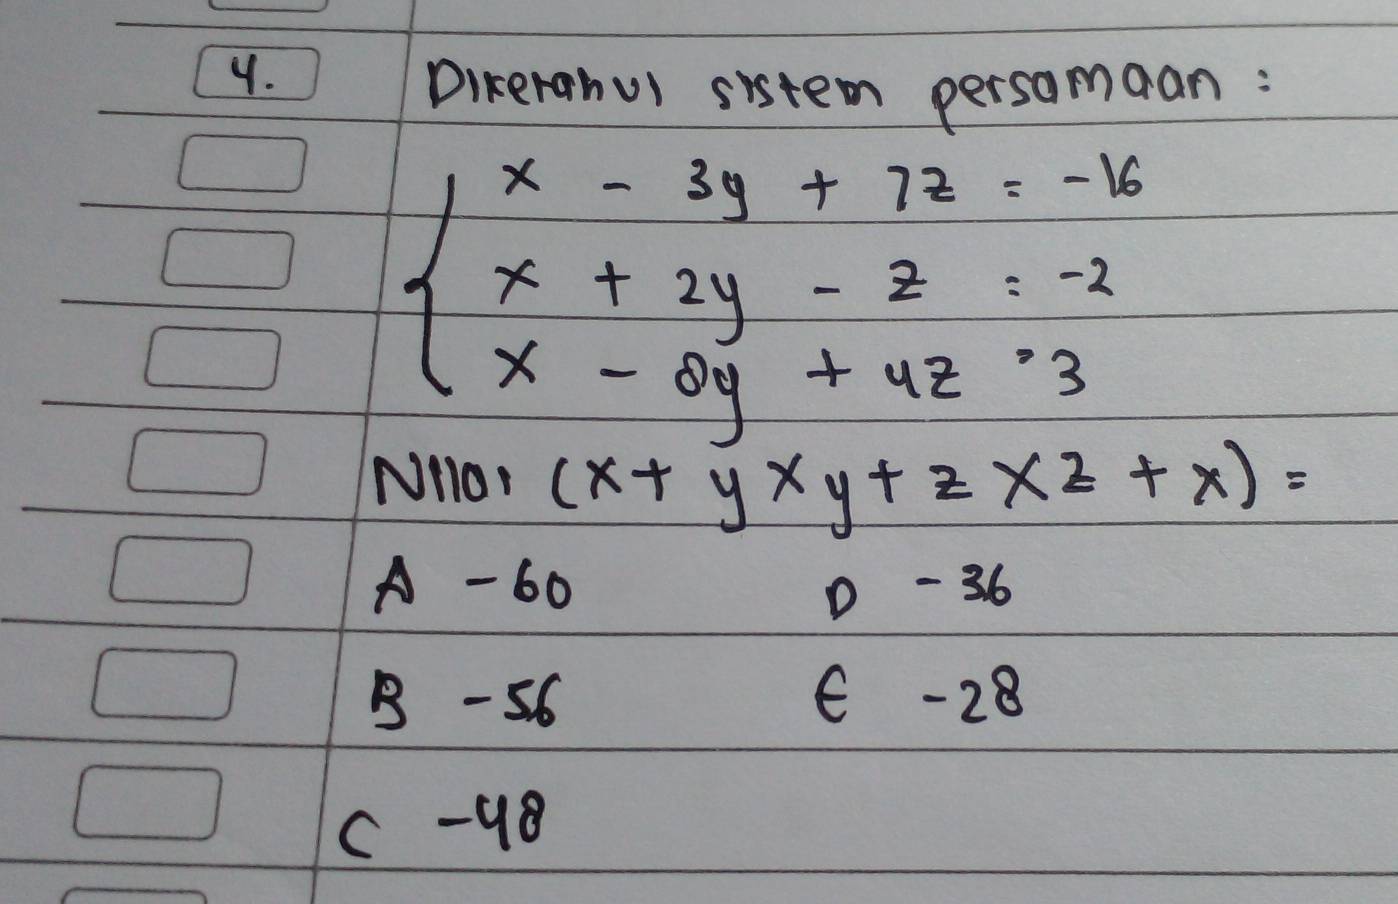 4. Diketahui sistem persamaan :
x - 3y + 7z = -16
x + 2y - z = -2
x - 8y + 4z = 3
Nilai (x + y x y + z x z + x) =
A -60 D -36
B -56 E -28
C -48